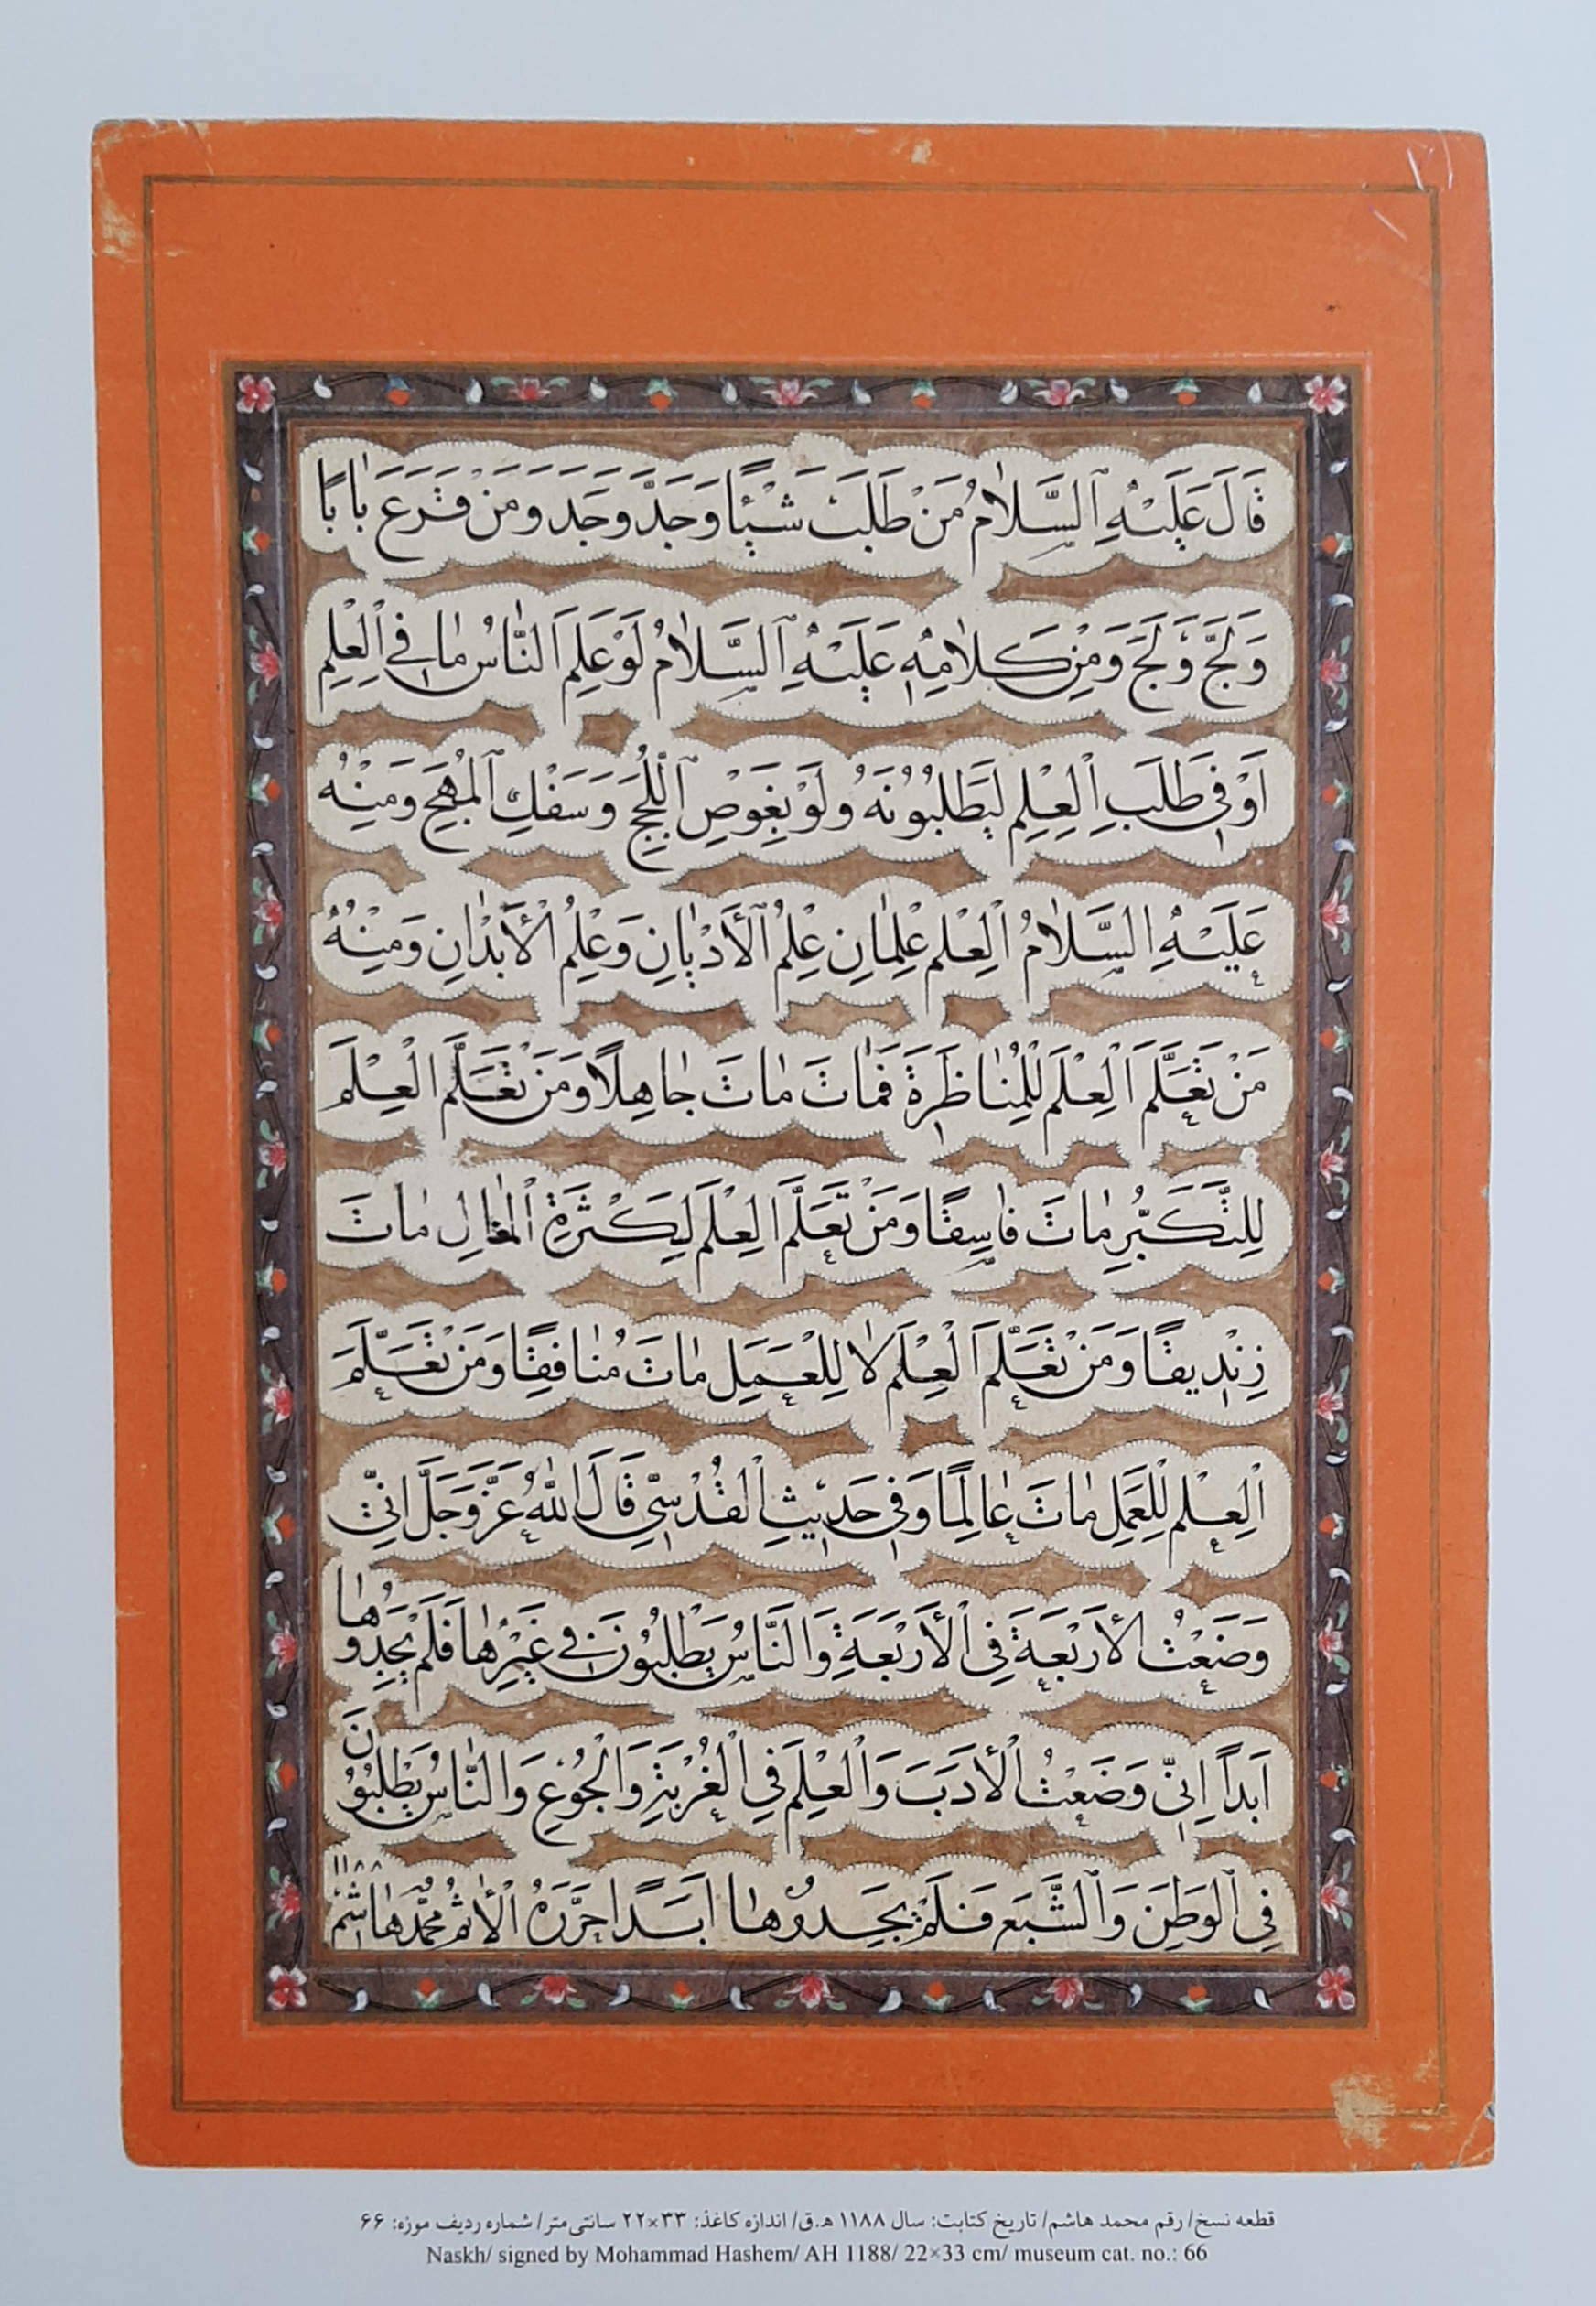 قَالَ عَلَیْهِ السَّلَامُ مَنْ طَلَبَ شَیْئًا وَجَدَّ وَجَدَ وَمَنْ قَرَعَ بَابًا
وَلَجَّ وَلَجَ وَمِنْ كَلَامِهِ عَلَیْهِ السَّلَامُ لَوْ عَلِمَ النَّاسُ مَا فِی الْعِلْمِ
اَوْ فِی طَلَبِ الْعِلْمِ لَیَطْلُبُونَهُ وَلَوْ بِغَوْصِ اللُّجَجِ وَسَفْكِ الْمُهَجِ وَمِنْهُ
عَلَیْهِ السَّلَامُ الْعِلْمُ عِلْمَانِ عِلْمُ الْأَدْیَانِ وَعِلْمُ الْأَبْدَانِ وَمِنْهُ
مَنْ تَعَلَّمَ الْعِلْمَ لِلْمُنَاظَرَةِ فَمَاتَ مَاتَ جَاهِلًا وَمَنْ تَعَلَّمَ الْعِلْمَ
لِلتَّكَبُّرِ مَاتَ فَاسِقًا وَمَنْ تَعَلَّمَ الْعِلْمَ لِكَثْرَةِ الْمَقَالِ مَاتَ
زِنْدِیقًا وَمَنْ تَعَلَّمَ الْعِلْمَ لَا لِلْعَمَلِ مَاتَ مُنَافِقًا وَمَنْ تَعَلَّمَ
الْعِلْمَ لِلْعَمَلِ مَاتَ عَالِمًا وَفِی حَدِیثِ الْقُدْسِیِّ قَالَ اللّٰهُ عَزَّ وَجَلَّ اِنِّی
وَضَعْتُ الْأَرْبَعَةَ فِی الْأَرْبَعَةِ وَالنَّاسُ یَطْلُبُونَ فِی غَیْرِهَا فَلَمْ یَجِدُوهَا
اَبَدًا اِنِّی وَضَعْتُ الْأَدَبَ وَالْعِلْمَ فِی الْغُرْبَةِ وَالْجُوعِ وَالنَّاسُ یَطْلُبُونَ
فِی الْوَطَنِ وَالشَّبَعِ فَلَمْ یَجِدُوهَا اَبَدًا حَرَّرَهُ الْأَثِمُ مُحَمَّد هَاشِم ۱۱۸۸
قطعه نسخ/ رقم محمد هاشم/ تاریخ کتابت: سال ۱۱۸۸ ه.ق/ اندازه کاغذ: ۳۳×۲۲ سانتی‌متر/ شماره ردیف موزه: ۶۶
Naskh/ signed by Mohammad Hashem/ AH 1188/ 22×33 cm/ museum cat. no.: 66